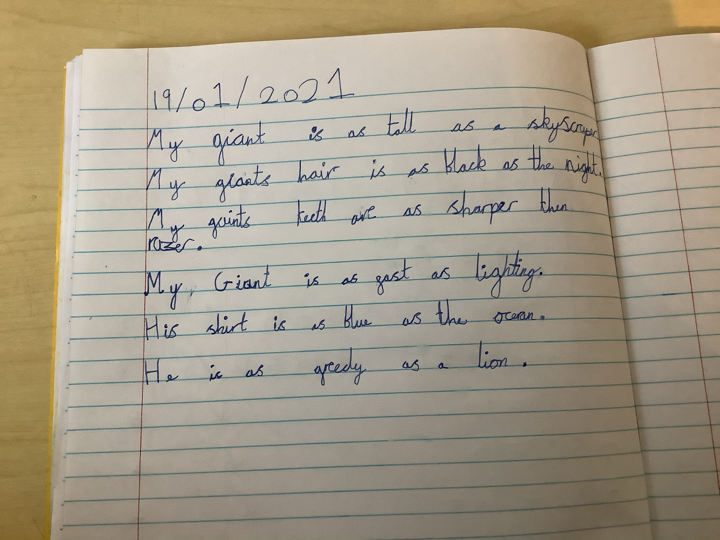 19/01/2021
My giant is as tall as a skyscraper
My giants hair is as black as the night.
My gaints teeth are as sharper then
razer.
My Giant is as fast as lighting.
His shirt is as blue as the ocean.
He is as greedy as a lion.